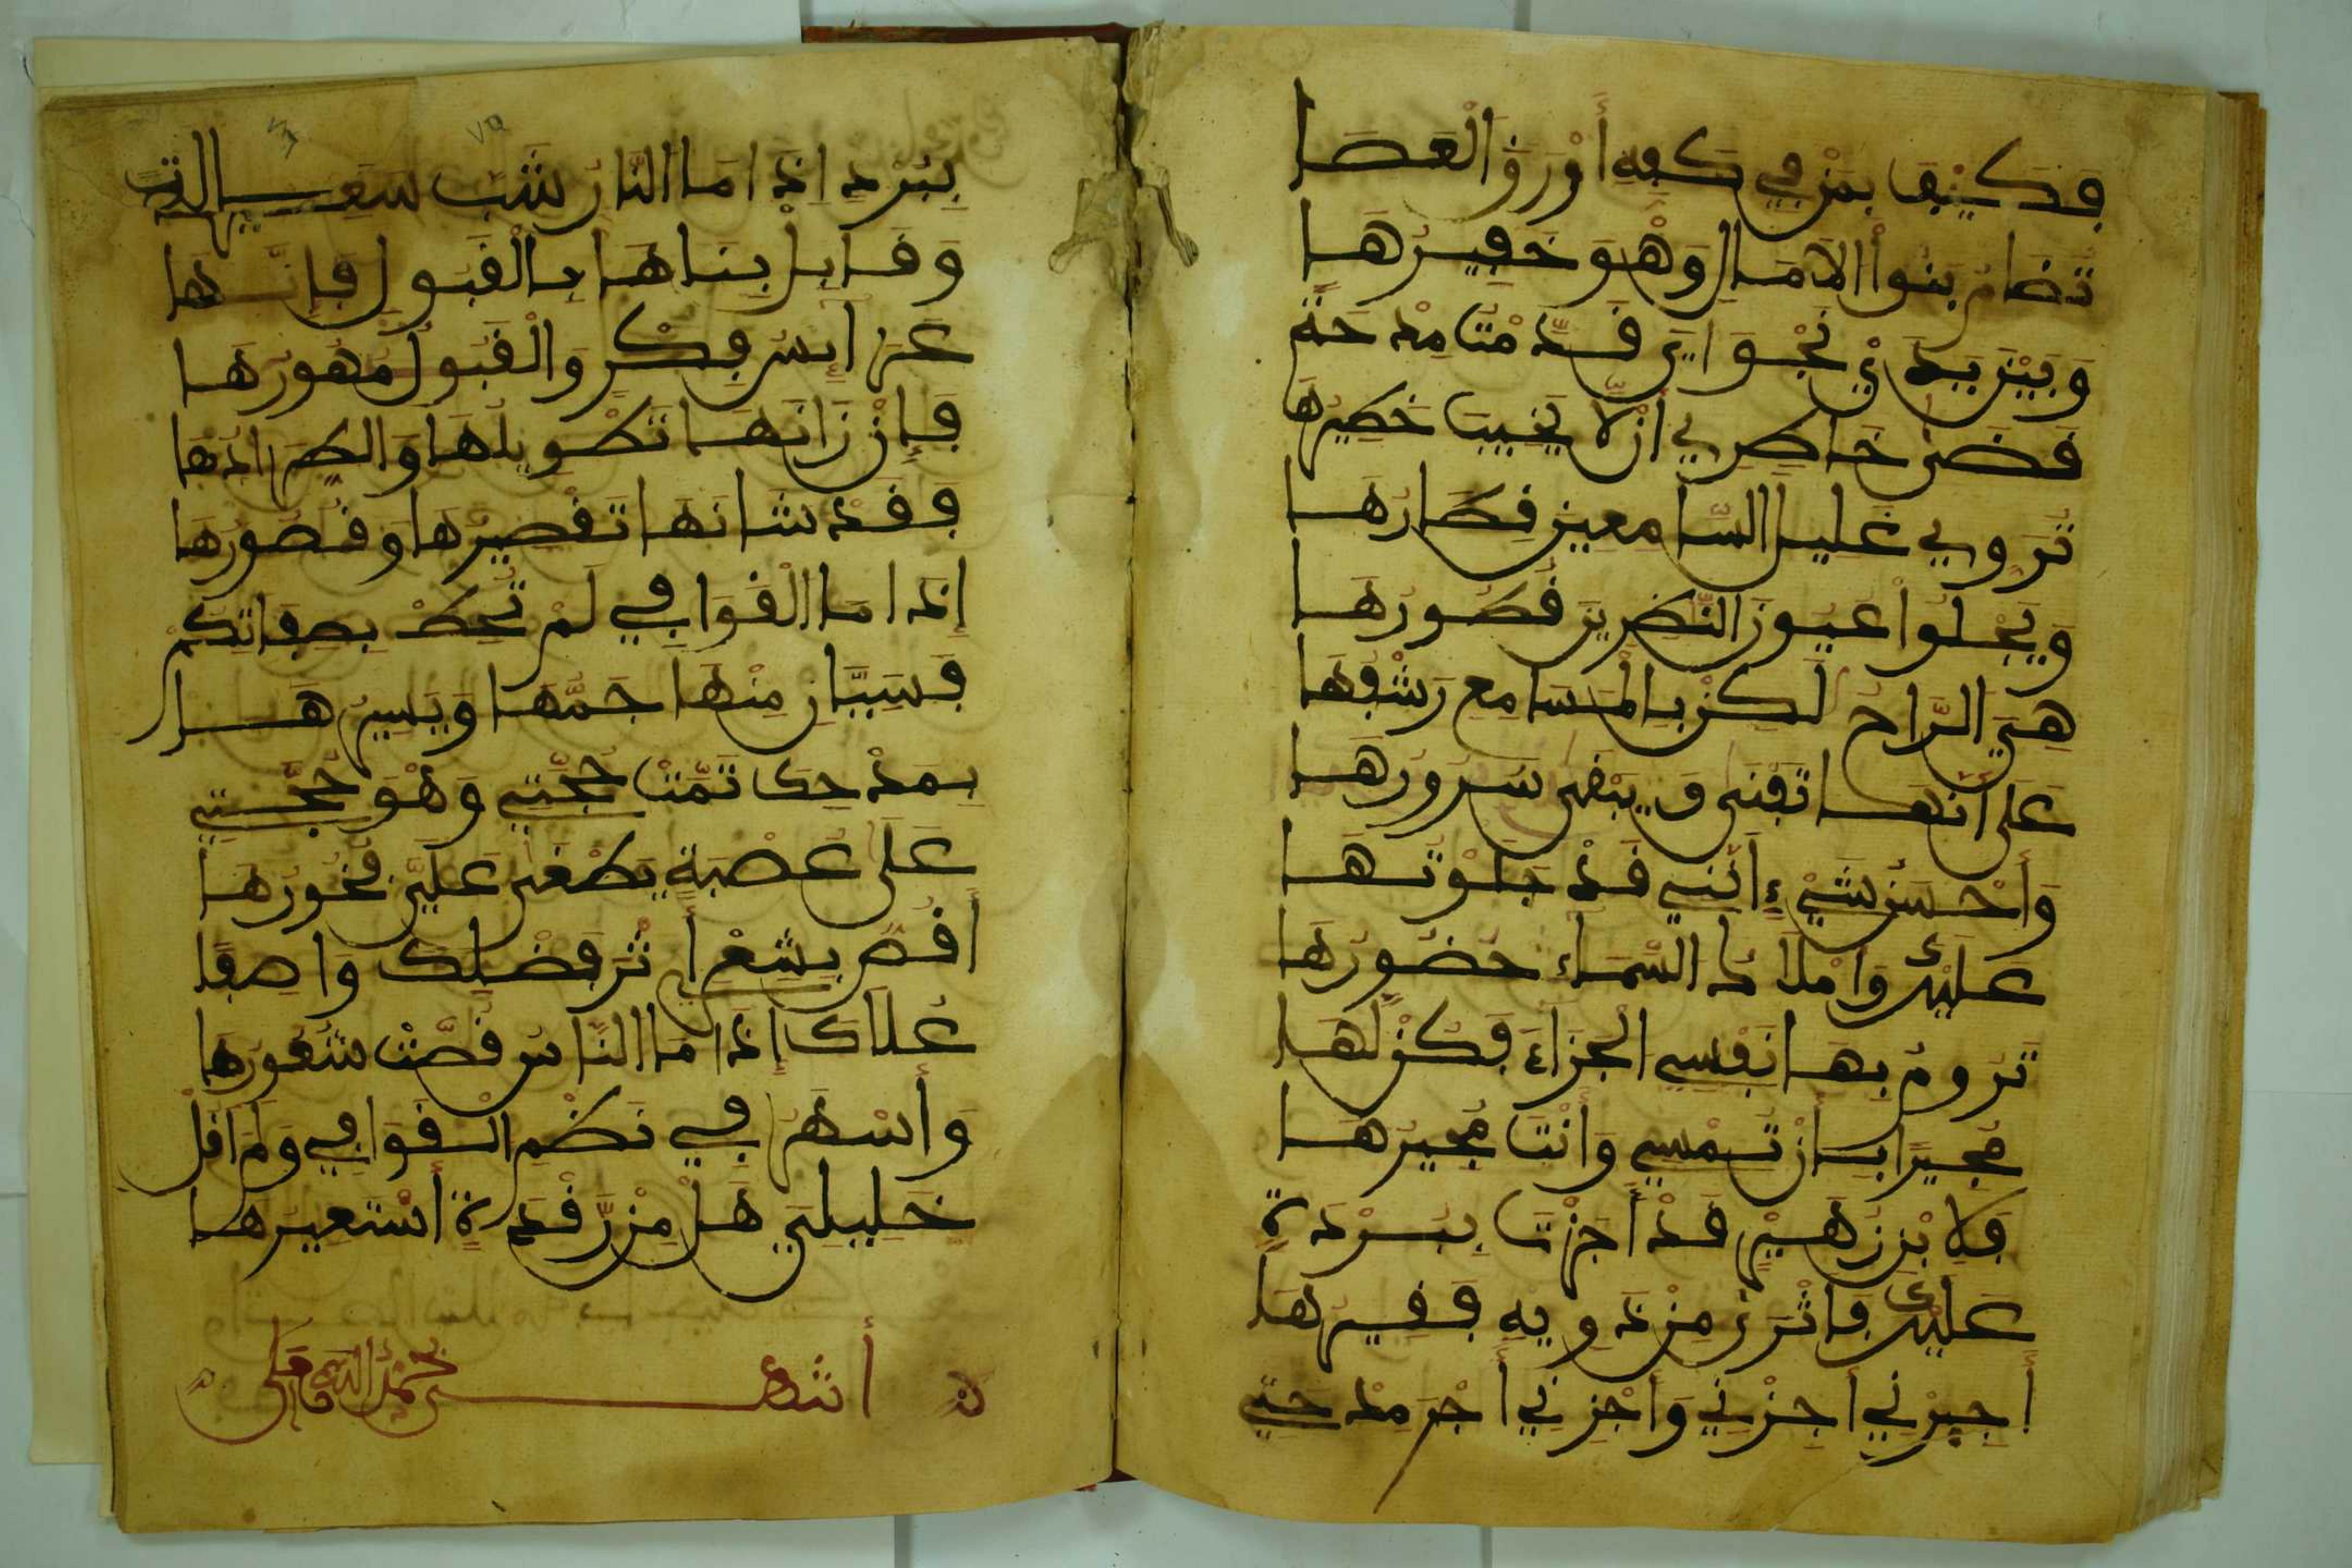 فكيف بمن في كفه أورق العصا
تضام بنوا الآمال وهو خفيرها
وبين يدي نجواي قدمت مدحة
قضى خاطري أن لا يخيب خطيرها
تروي غليل السامعين قطارها
ويجلوا عيون النظرين قصورها
هي الراح لكن بالمسامع رشفها
على أنها تفنى ويبقى سرورها
وأحسن شيء أنني قد جلوتها
عليك وأملاك السماء حضورها
تروم بها نفسي الجزاء فكن لها
مجيرا بأن تمسي وأنت مجيرها
فلابن زهير قد أجزت ببردة
عليك فأثرى من ذويه فقيرها
أجرني أجزني واجزني أجر مدحتي
ببرد إذا ما النار شب سعيرها
وقابل بناها بالقبول فإنها
عرايس فكر والقبول مهورها
فإن زانها تطويلها واطرادها
فقد شانها تقصيرها وقصورها
إذا ما القوافي لم تحط بصفاتكم
فسيان منها جمها ويسيرها
بمدحك تمت حجتي وهو حجتي
على عصبة يطغى علي فجورها
أقص بشعري أثر فضلك واصفا
علاك إذا ما الناس قصت شعورها
وأسهر في نظم القوافي ولم أقل
خليلي هل من رقدة أستعيرها
أنتهت بحمد الله